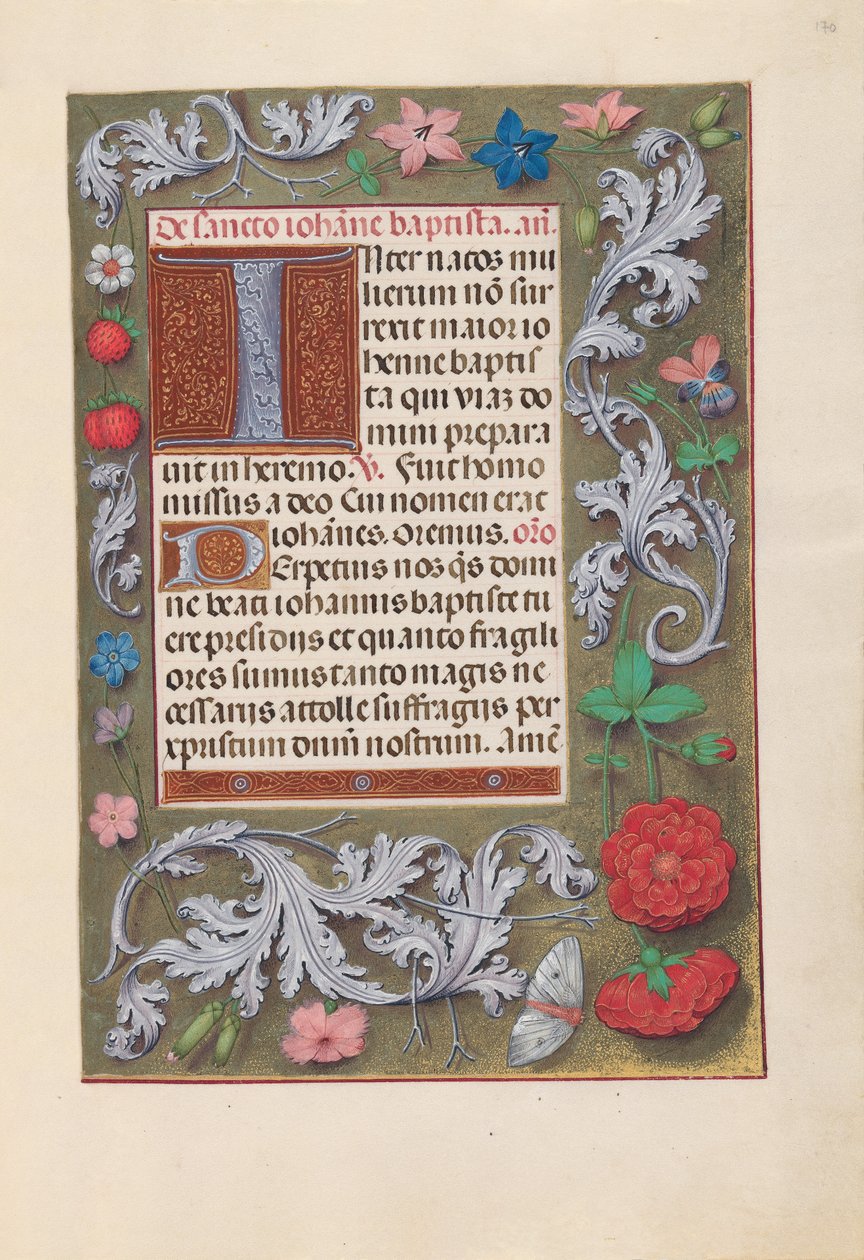 170
De sancto iohāne baptista. añ.
Inter natos mu
lierum nō sur
rexit maior io
hanne baptis
ta qui viaz do
mini prepara
uit in heremo. V. Fuit homo
missus a deo Cui nomen erat
iohānes. Oremus. orō
PErpetuis nos q̄s domi
ne beati iohannis baptiste tu
ere presidijs et quanto fragili
ores sumus tanto magis ne
cessarijs attolle suffragijs per
xpristum dnm̄ nostrum. Amē